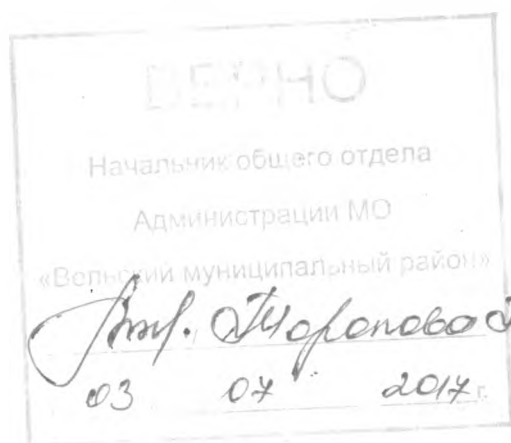 ВЕРНО
Начальник общего отдела
Администрации МО
«Вельский муниципальный район»
Торопова
03 07 2017 г.